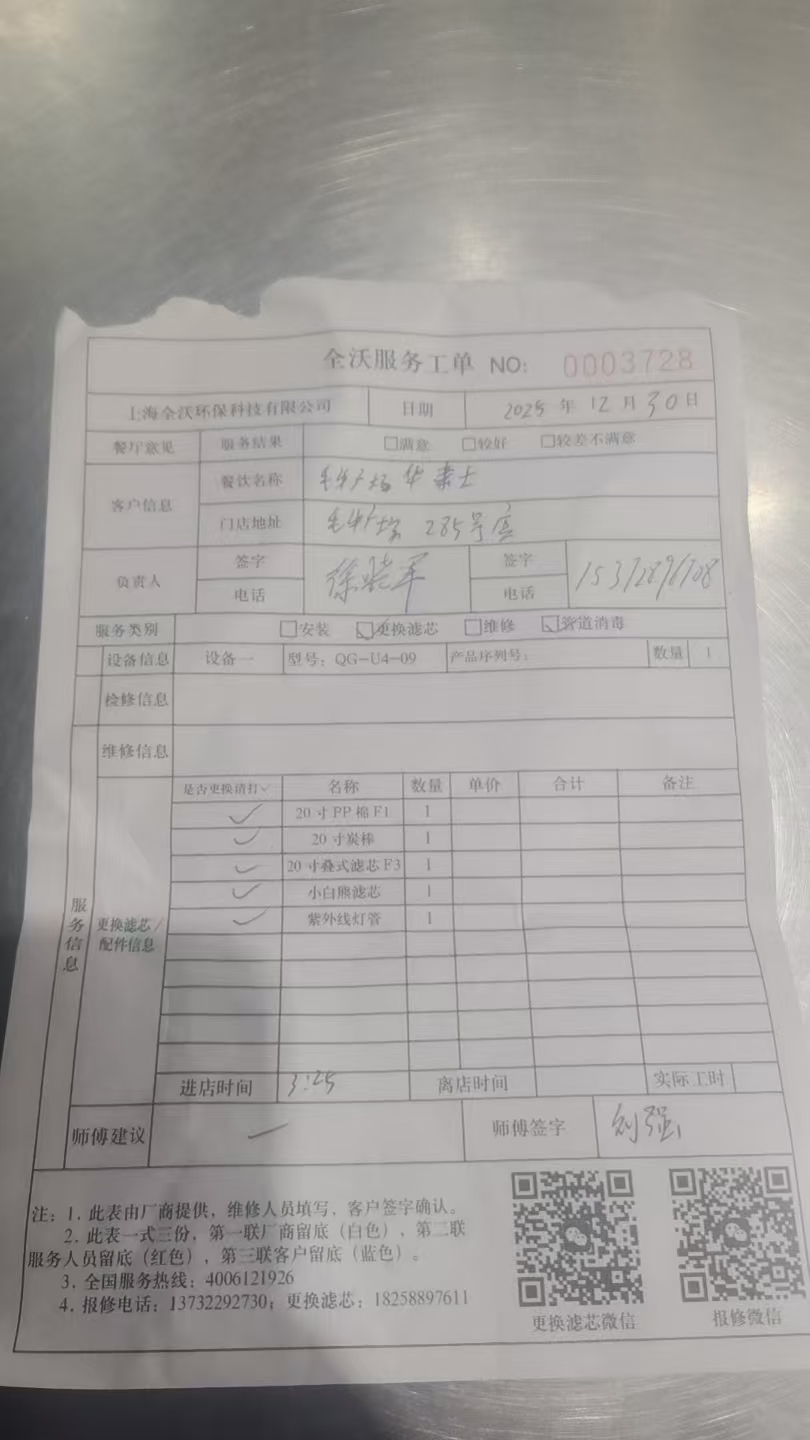 全沃服务工单 NO: 0003728
上海全沃环保科技有限公司 日期 2025年12月30日
餐厅意见 服务结果 □满意 □较好 □较差不满意
客户信息 餐饮名称 华莱士
门店地址 285号店
负责人 签字 徐晓军 签字
电话 电话
服务类别 □安装 ☑更换滤芯 □维修 ☑管道消毒
设备信息 设备一 型号: QG-U4-09 产品序列号: 数量 1
检修信息
维修信息
服务信息
更换滤芯/配件信息
是否更换请打✓ 名称 数量 单价 合计 备注
✓ 20寸PP棉F1 1
✓ 20寸炭棒 1
✓ 20寸叠式滤芯F3 1
✓ 小白熊滤芯 1
✓ 紫外线灯管 1
进店时间 3:25 离店时间 实际工时
师傅建议 师傅签字 刘强
注: 1. 此表由厂商提供, 维修人员填写, 客户签字确认。
2. 此表一式三份, 第一联厂商留底 (白色), 第二联
服务人员留底 (红色), 第三联客户留底 (蓝色)。
3. 全国服务热线: 4006121926
4. 报修电话: 13732292730; 更换滤芯: 18258897611
更换滤芯微信 报修微信